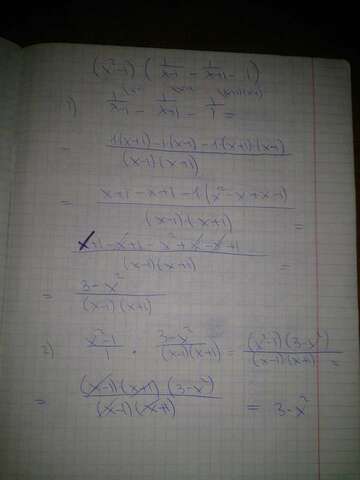 (x²-1) (1/(x-1) - 1/(x+1) - 1)
1) 1/(x-1) - 1/(x+1) - 1/1 =
= (1(x+1)-1(x-1)-1(x+1)(x-1))/((x-1)(x+1))
= (x+1-x+1-1(x²-x+x-1))/((x-1)(x+1)) =
(x+1-x+1-x²+x-x+1)/((x-1)(x+1)) =
= (3-x²)/((x-1)(x+1))
2) (x²-1)/1 · (3-x²)/((x-1)(x+1)) = ((x²-1)(3-x²))/((x-1)(x+1)) =
= ((x-1)(x+1)(3-x²))/((x-1)(x+1)) = 3-x²